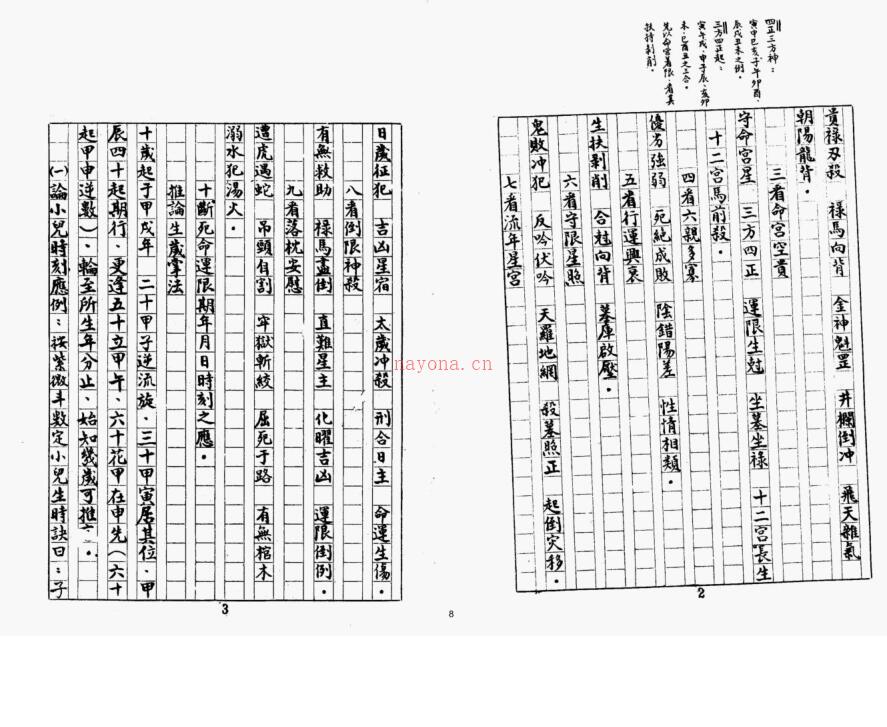 四正三方神：
寅申巳亥子午卯酉、
辰戌丑未之例。
三方四正起：
寅午戌、申子辰、亥卯
未、巳酉丑之三合。
先以命宮着限、看其
扶持剝削。
貴祿刃殺　祿馬向背　金神魁罡　井欄倒冲　飛天雜氣
朝陽龍背。
三看命宮空貴
守命宮星　三方四正　運限生尅　坐墓坐祿　十二宮長生
十二宮馬前殺。
四看六親多寡
優劣強弱　死絕成敗　陰錯陽差　性情相類。
五看行運興衰
生扶剝削　合尅向背　墓庫啟壓。
六看守限星照
鬼敗冲犯　反吟伏吟　天羅地網　殺墓照正　起倒灾移。
七看流年星宮
2
日歲征犯　吉凶星宿　太歲冲殺　刑合日主　命運生傷。
八看倒限神殺
有無救助　祿馬盡倒　直難星主　化曜吉凶　運限倒例。
九看落枕安慰
遭虎遇蛇　吊頸自割　牢獄斬絞　屈死于路　有無棺木
溺水犯湯火。
十斷死命運限期年月日時刻之應。
推論生歲掌法
十歲起于甲戌年　二十甲子逆流旋．三十甲寅居其位．甲
辰四十起期行、更逢五十立甲午、六十花甲在申先（六十
起甲申逆數）、輪至所生年分止、始知幾歲可推六。
㈠論小兒時刻應例：按紫微斗數定小兒生時訣曰：子
3
8
nayona.cn